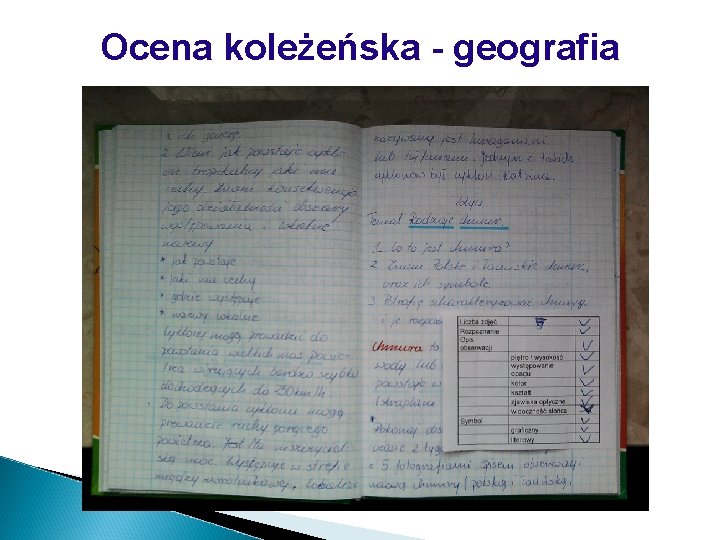 Ocena koleżeńska - geografia
2 Wiem jak powstaje cykl-
on tropikalny jaki ma
cechy. Znam konsekwencje
jego działalności obszary
występowania i lokalne
nazwy
* jak powstaje
* jaki ma cechy
* gdzie występuje
* nazwy lokalne
Cyklony mogą prowadzić do
powstania wielkich mas powie-
trza wirujących bardzo szybko
dochodzących do 250 km/h.
Do powstania cyklonu mogą
prowadzić ruchy gorącego
powietrza. Jest to niszczyciel-
ską moc. Występuje w strefie
międzyzwrotnikowej, lokalnie
nazywany jest huraganem
lub tajfunem. Jednym z takich
cyklonów był cyklon Katrina.
Temat Rodzaje chmur.
1. Co to jest chmura?
2. Znam Polskie i Łacińskie
oraz ich symbole.
3. Potrafię scharakteryzować chmury
i je
Chmura to
wody lub
powstaje w
Pokonaj
czasie 2
z 5 fotografiami opisem obserwacji
nazwą chmury (polską i łacińską
Liczba zdjęć 5
Rozpoznanie
Opis
obserwacji
piętro / wysokość
występowanie
opadu
kolor
kształt
zjawiska optyczne
widoczność słońca
Symbol
graficzny
literowy